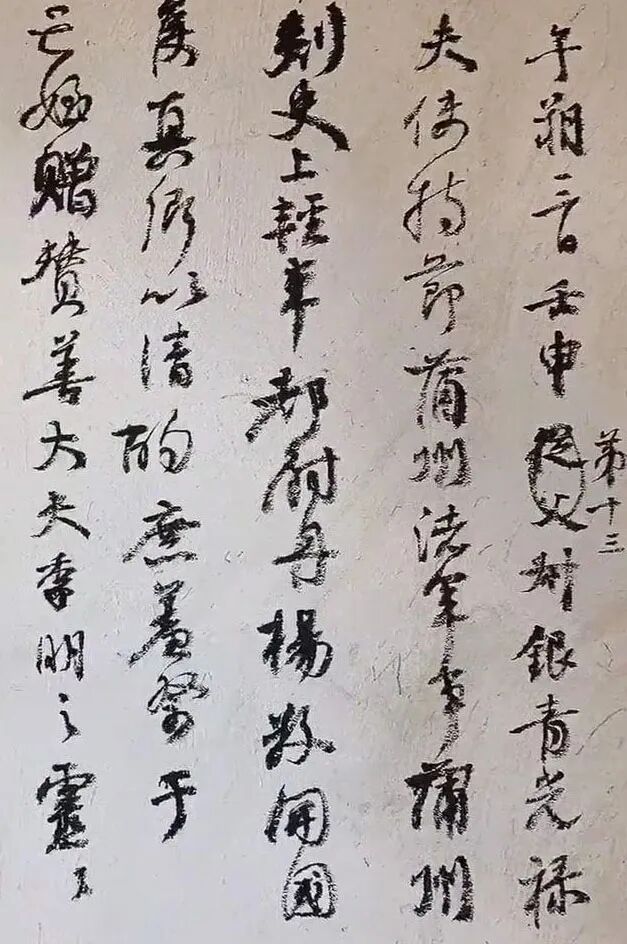 午朔三日壬申從父叔銀青光祿
第十三
夫使持節蒲州諸軍事蒲州
刺史上輕車都尉丹楊縣開國
侯真卿以清酌庶羞祭于
亡姪贈贊善大夫季明之靈曰